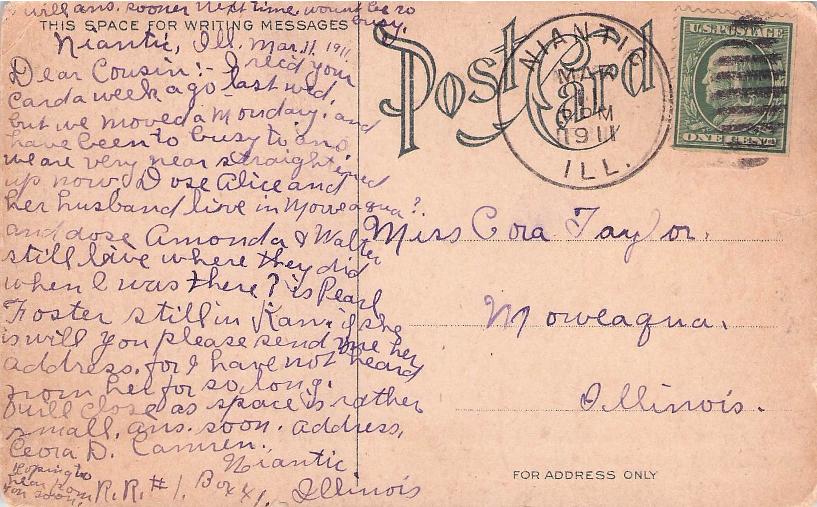 will ans. sooner next time wount be so
busy.
THIS SPACE FOR WRITING MESSAGES
Niantic, Ill. Mar. 11, 1911.
Dear Cousin:- I rec'd your
card a week ago last wed.
but we moved a Monday. and
have been to busy to ans.
we are very near straightened
up now. Dose Alice and
her husband live in Moweaqua?.
and dose Amonda & Walter
still live where they did
when I was there? is Pearl
Foster still in Kan. if she
is will you please send me her
address. for I have not heard
from her for so long.
will close as space is rather
small, ans. soon. address,
Ceora D. Camren.
Niantic
R.R. #1, Box 41, Illinois
Hoping to
hear from
you soon.
Post Card
NIANTIC
MAR
11
PM
1911
ILL.
U.S. POSTAGE
ONE CENT
Miss Cora Taylor.
Moweaqua.
Illinois.
FOR ADDRESS ONLY